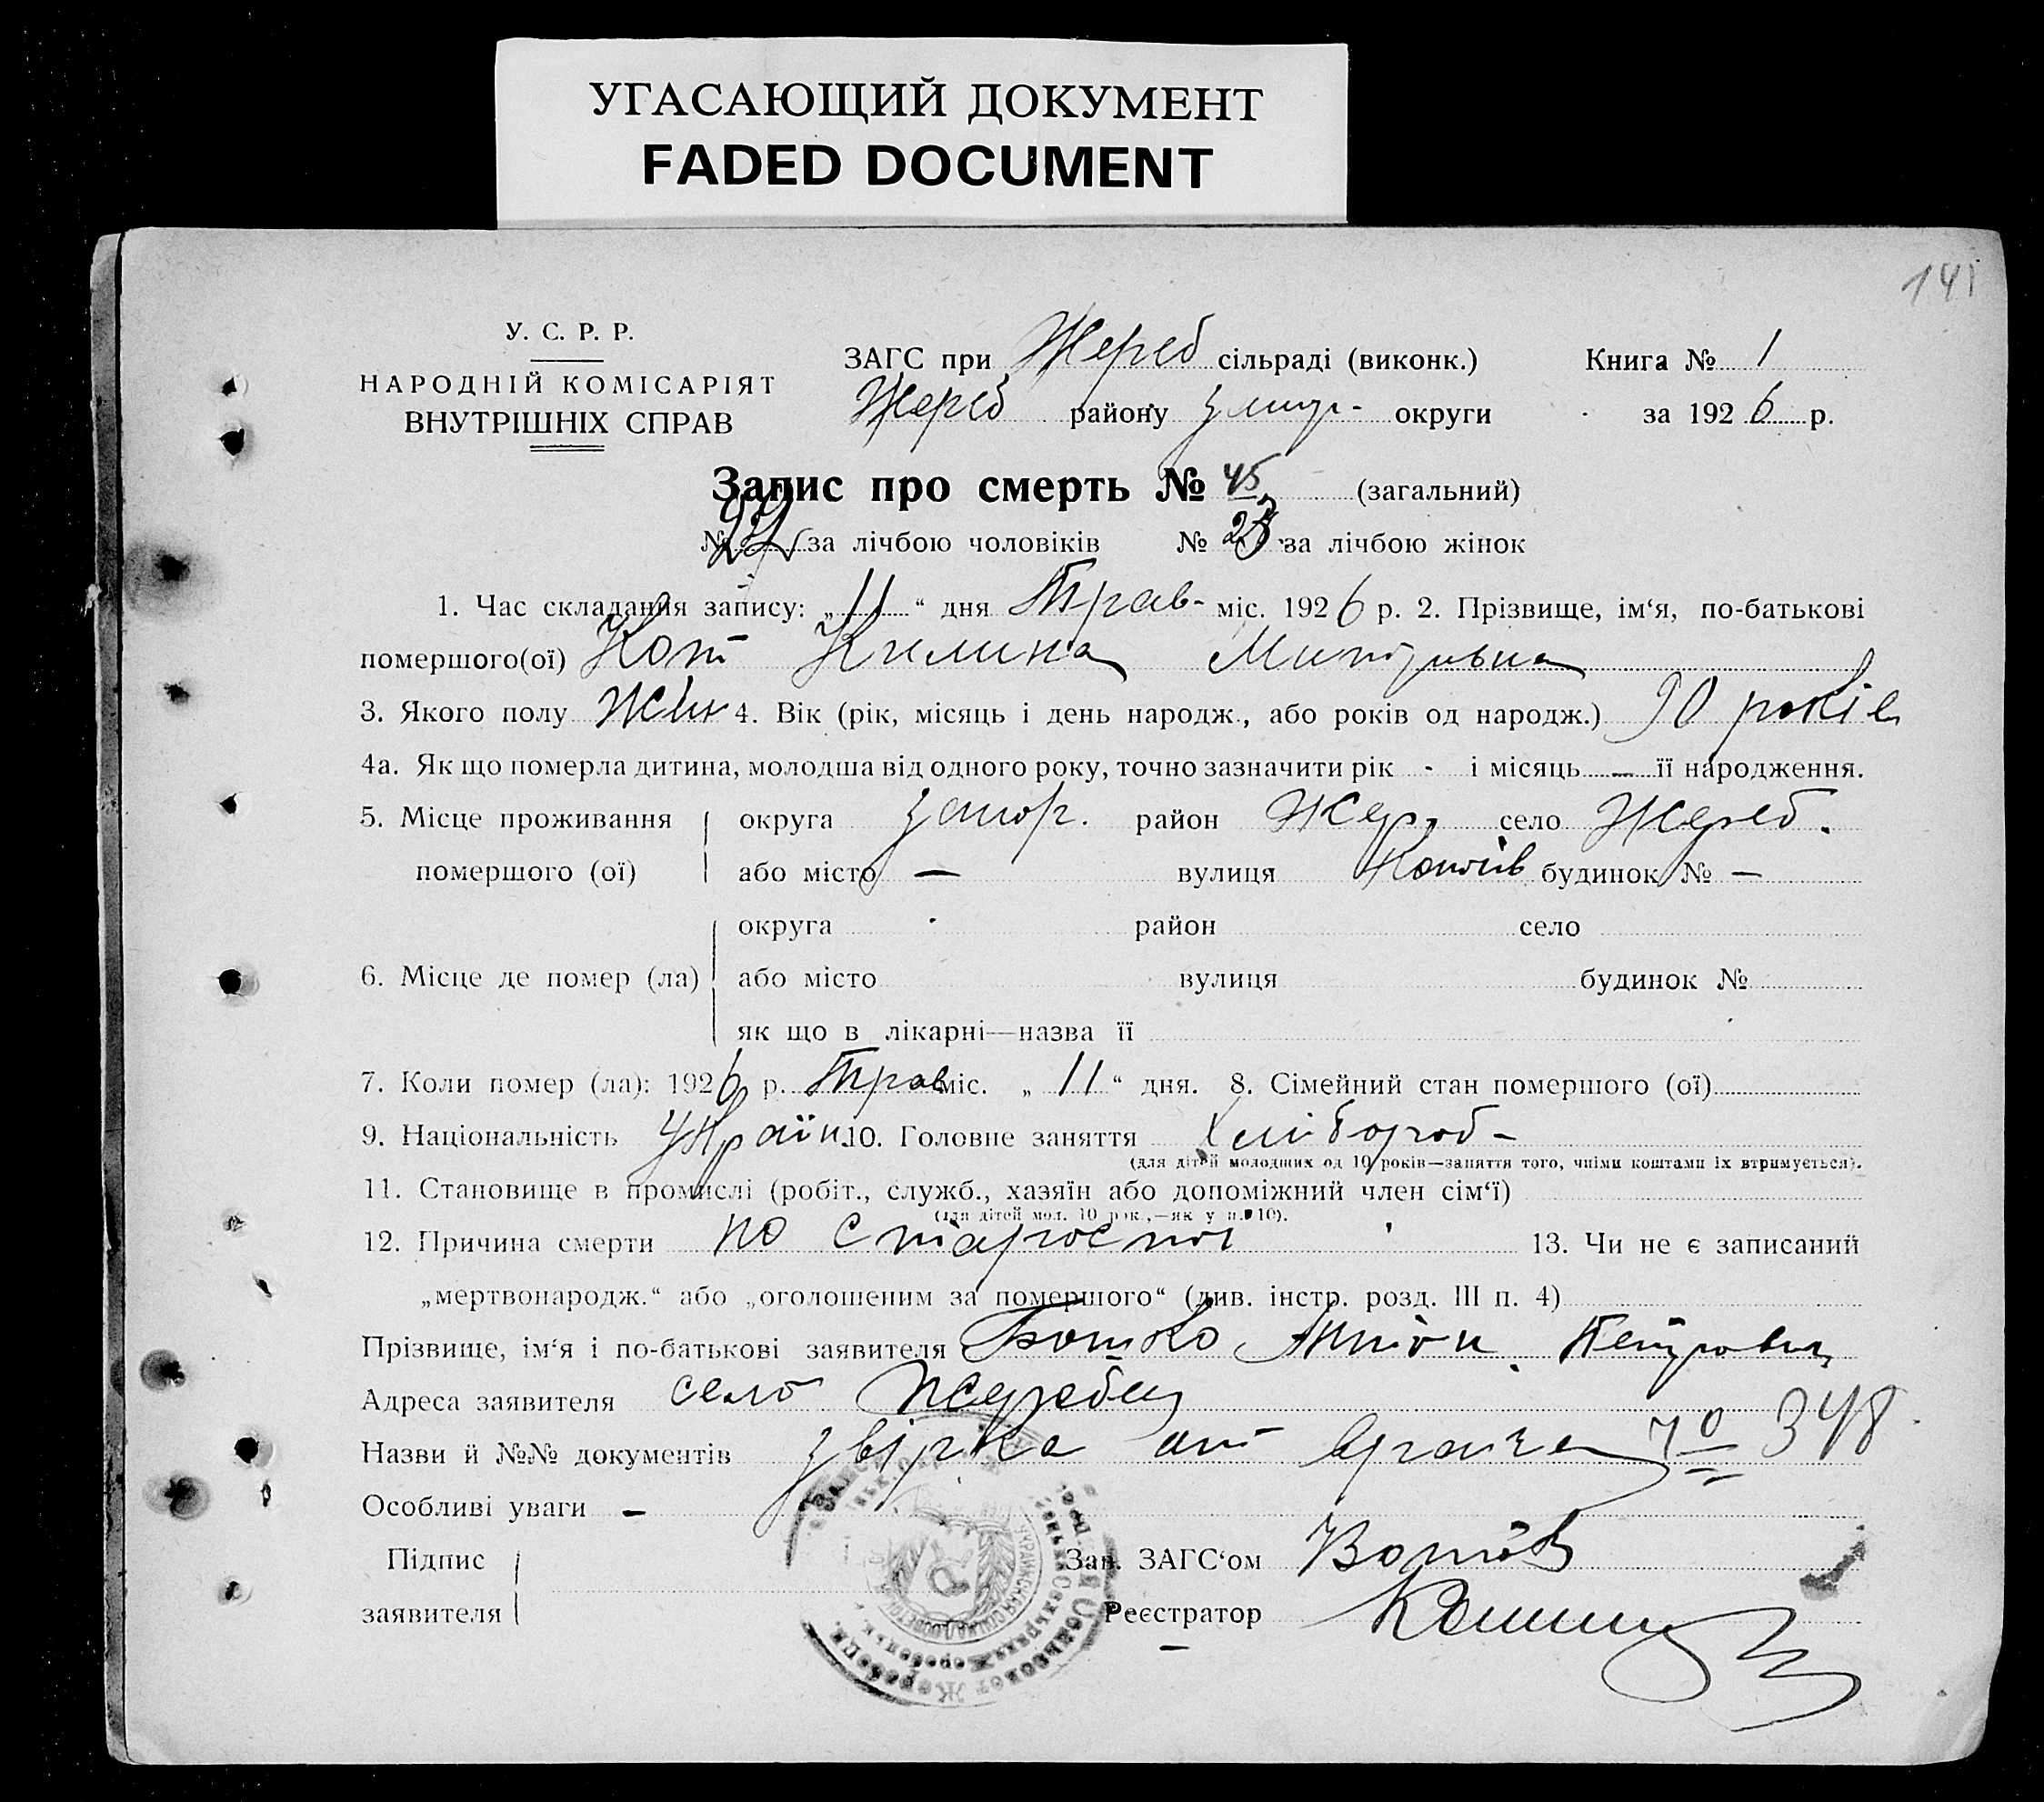 УГАСАЮЩИЙ ДОКУМЕНТ
FADED DOCUMENT
141
У. С. Р. Р.
НАРОДНІЙ КОМІСАРІЯТ
ВНУТРІШНІХ СПРАВ
ЗАГС при Жереб сільраді (виконк.) Книга № 1
Жереб району округи за 1926 р.
Запис про смерть № 45 (загальний)
№ за лічбою чоловіків № 23 за лічбою жінок
1. Час складання запису: „11“ дня Трав- міс. 1926 р. 2. Прізвище, ім‘я, по-батькові
помершого(ої) Кот Килина
3. Якого полу Жін 4. Вік (рік, місяць і день народж., або років од народж.) 90 років
4а. Як що померла дитина, молодша від одного року, точно зазначити рік - і місяць — її народження.
5. Місце проживання округа Запор. район Жер. село Жереб.
помершого (ої) або місто — вулиця будинок № —
округа район село
6. Місце де помер (ла) або місто вулиця будинок №
як що в лікарні—назва її
7. Коли помер (ла): 1926 р. Трав міс. „11“ дня. 8. Сімейний стан помершого (ої)
9. Національність Україн. 10. Головне заняття Хлібороб-
(для дітей молодших од 10 років—заняття того, чиїми коштами їх втримується).
11. Становище в промислі (робіт., служб., хазяїн або допоміжний член сім‘ї)
(для дітей мол. 10 рок.,—як у п. 10).
12. Причина смерти по старости 13. Чи не є записаний
„мертвонародж.“ або „оголошеним за помершого“ (див. інстр. розд. III п. 4)
Прізвище, ім‘я і по-батькові заявителя Бошко Антон Петрович
Адреса заявителя село Жеребец
Назви й №№ документів от врача № 348
Особливі уваги —
Підпис Зав. ЗАГС‘ом
заявителя Реєстратор